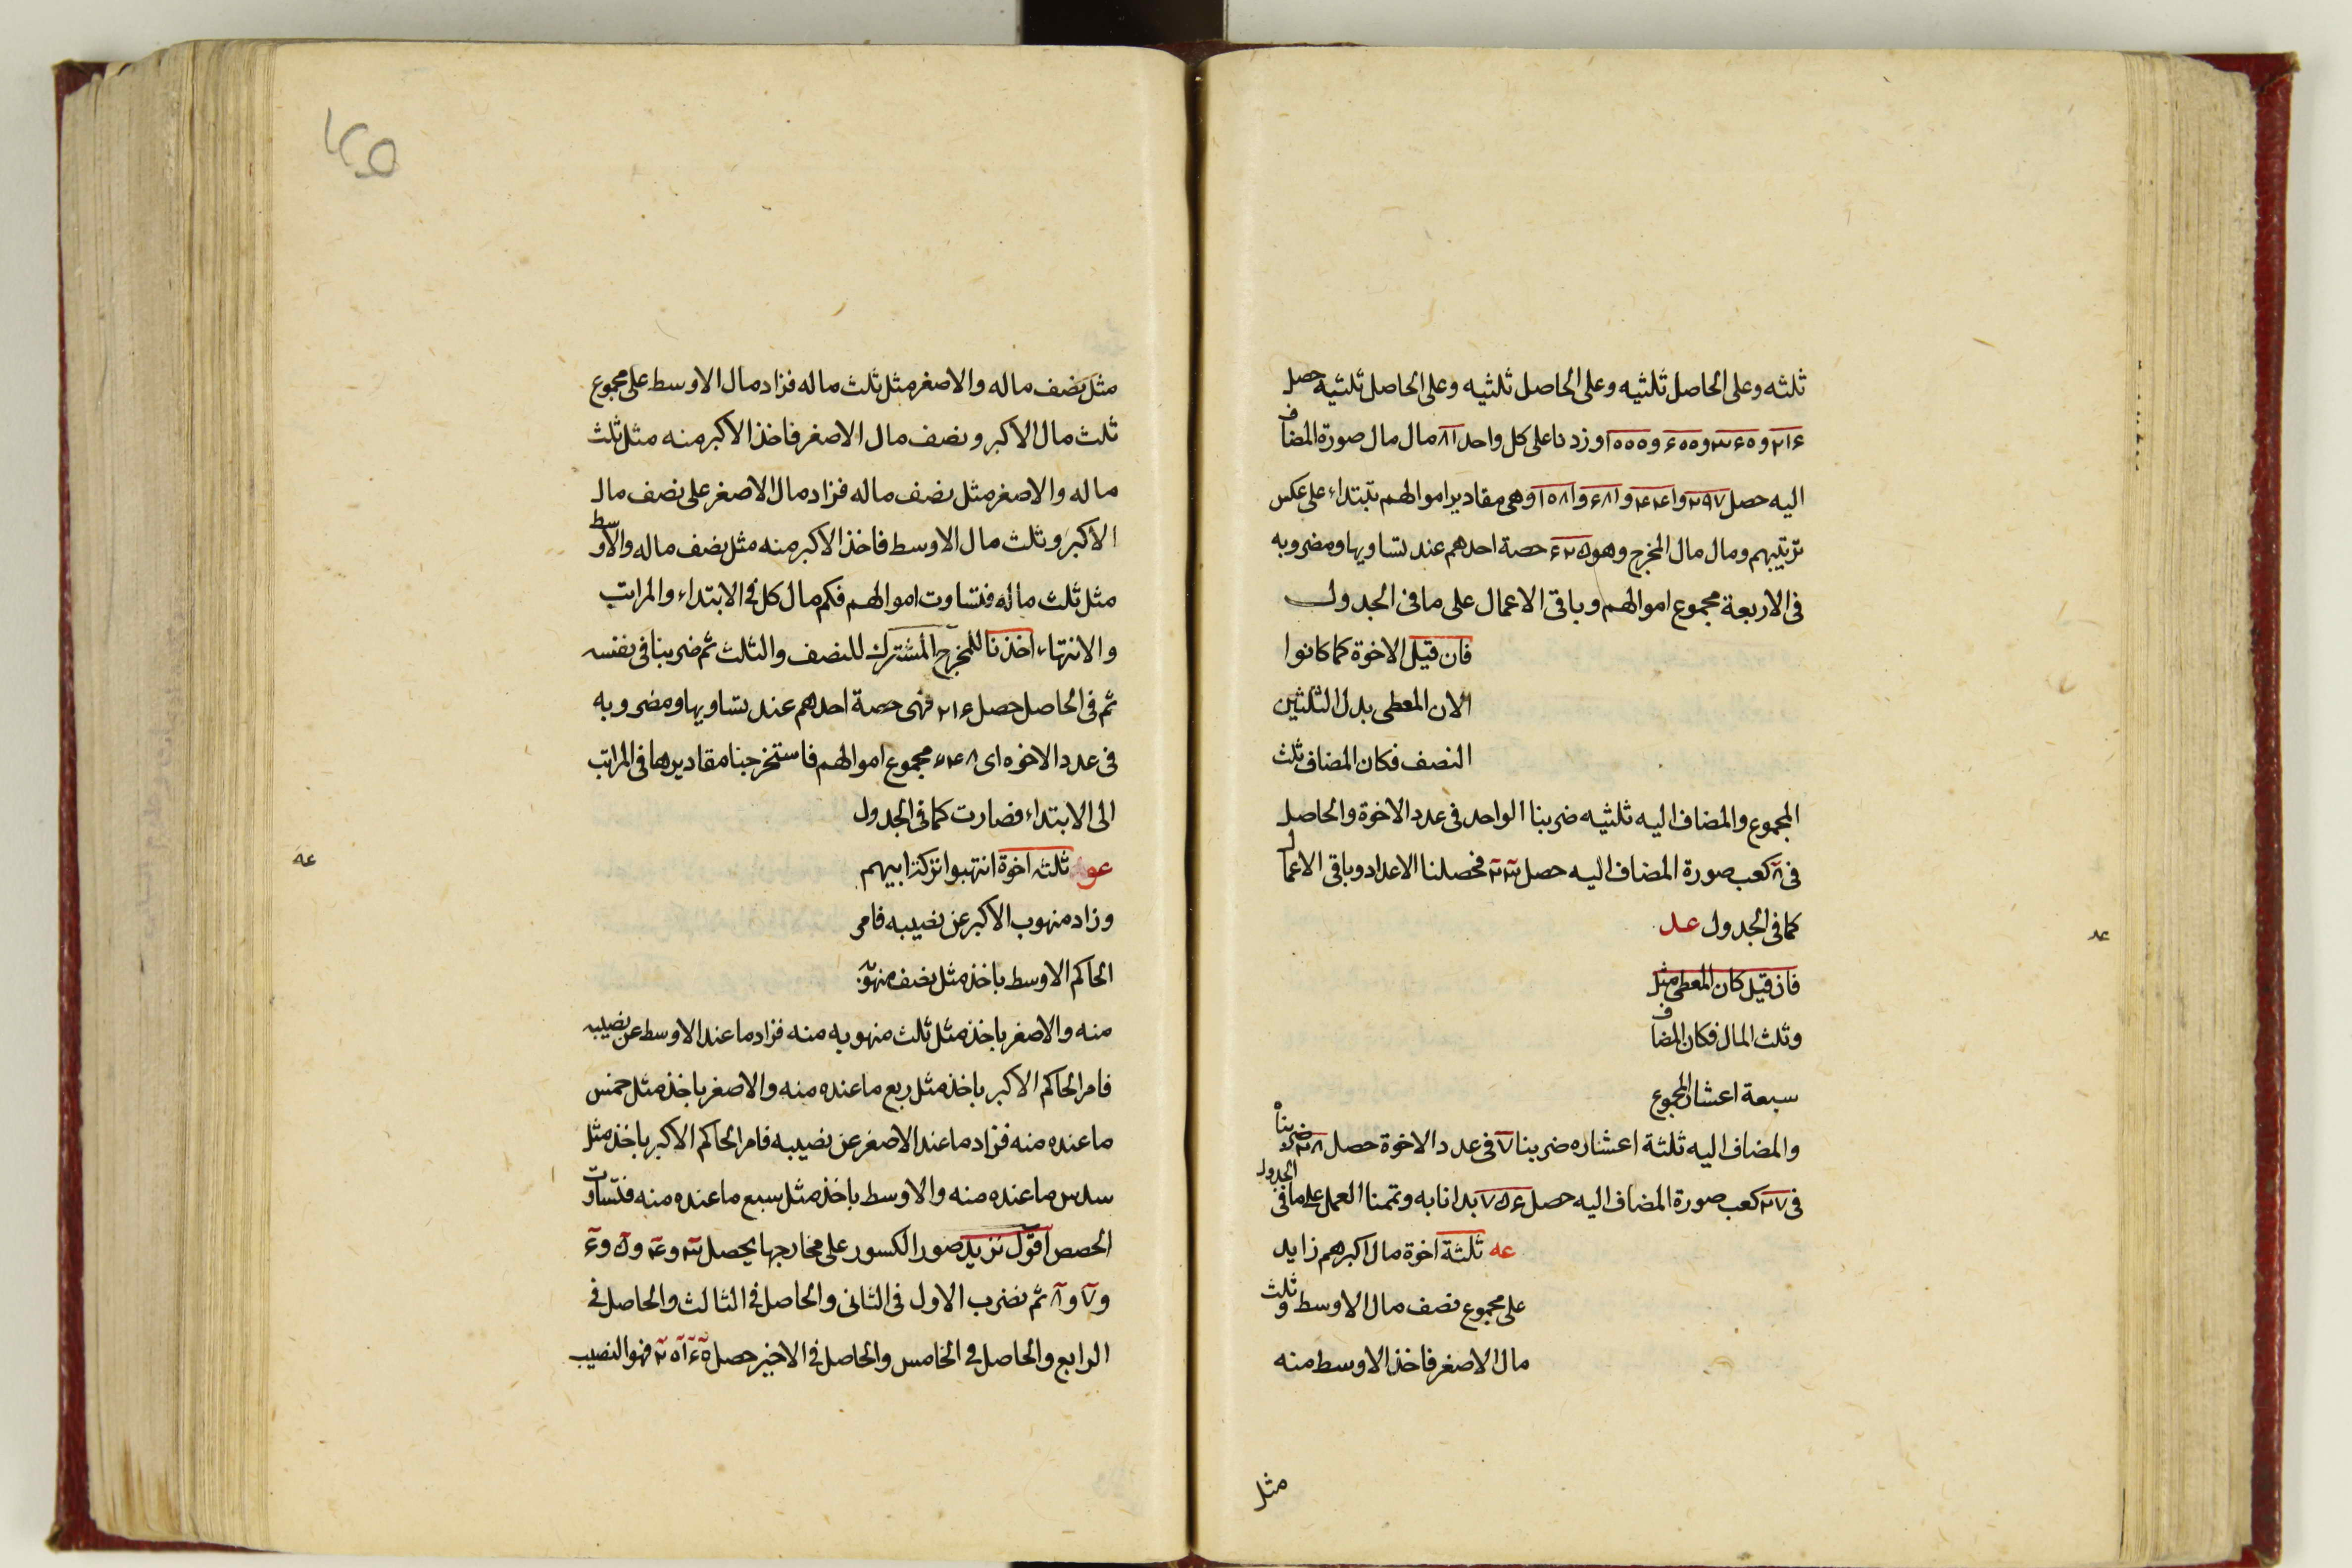 ثلثه وعلى الحاصل ثلثيه وعلى الحاصل ثلثيه وعلى الحاصل ثلثيه حصل
وزدنا على كل واحد ٨١ مال مال صورة المضاف
اليه حصل وهى مقادير اموالهم تبتداء على عكس
ترتيبهم ومال مال المخرج وهو ٦٢٥ حصة احدهم عند تساويها ومضروبه
فى الاربعة مجموع اموالهم وباقى الاعمال على ما فى الجدول
فان قيل الاخوة كما كانوا
الان المعطى بدل الثلثين
النصف فكان المضاف ثلث
المجموع والمضاف اليه ثلثيه ضربنا الواحد فى عدد الاخوة والحاصل
فى ٨ كعب صورة المضاف اليه حصل ٣٢ فحصلنا الاعداد وباقى الاعمال
كما فى الجدول عد
عد
فان قيل كان المعطى مثل
وثلث المال فكان المضاف
سبعة اعشار المجموع
والمضاف اليه ثلثة اعشاره ضربنا ٧ فى عدد الاخوة حصل ٢٨ ضربناه
فى ٢٧ كعب صورة المضاف اليه حصل ٧٥٦ بدانا به وتممنا العمل على ما فى الجدول
عه ثلثة اخوة مال اكبرهم زايد
على مجموع نصف مال الاوسط وثلث
مال الاصغر فاخذ الاوسط منه
مثل
١٢٥
مثل نصف ماله والاصغر مثل ثلث ماله فزاد مال الاوسط على مجموع
ثلث مال الاكبر ونصف مال الاصغر فاخذ الاكبر منه مثل ثلث
ماله والاصغر مثل نصف ماله فزاد مال الاصغر على نصف مال
الاكبر وثلث مال الاوسط فاخذ الاكبر منه مثل نصف ماله والاوسط
مثل ثلث ماله فتساوت اموالهم فكم مال كل فى الابتداء والمراتب
والانتهاء اخذنا المخرج المشترك للنصف والثلث ثم ضربنا فى نفسه
ثم فى الحاصل حصل ٢١٦ فهى حصة احدهم عند تساويها ومضروبه
فى عدد الاخوه اى ٦٤٨ مجموع اموالهم فاستخرجنا مقاديرها فى المراتب
الى الابتداء فصارت كما فى الجدول
عه
ثلثه اخوة انتهبوا تركة ابيهم
وزاد منهوب الاكبر عن نصيبه فامر
الحاكم الاوسط باخذ مثل نصف منهوبه
منه والاصغر باخذ مثل ثلث منهوبه منه فزاد ما عند الاوسط عن نصيبه
فامر الحاكم الاكبر باخذ مثل ربع ما عنده منه والاصغر باخذ مثل خمس
ما عنده منه فزاد ما عند الاصغر عن نصيبه فامر الحاكم الاكبر باخذ مثل
سدس ما عنده منه والاوسط باخذ مثل سبع ما عنده منه فتساوت
الحصص اقول نزيد صور الكسور على مخارجها يحصل ٣ و ٤ و ٥ و ٦
و ٧ و ٨ ثم نضرب الاول فى الثانى والحاصل فى الثالث والحاصل فى
الرابع والحاصل فى الخامس والحاصل فى الاخير حصل فهو النصيب